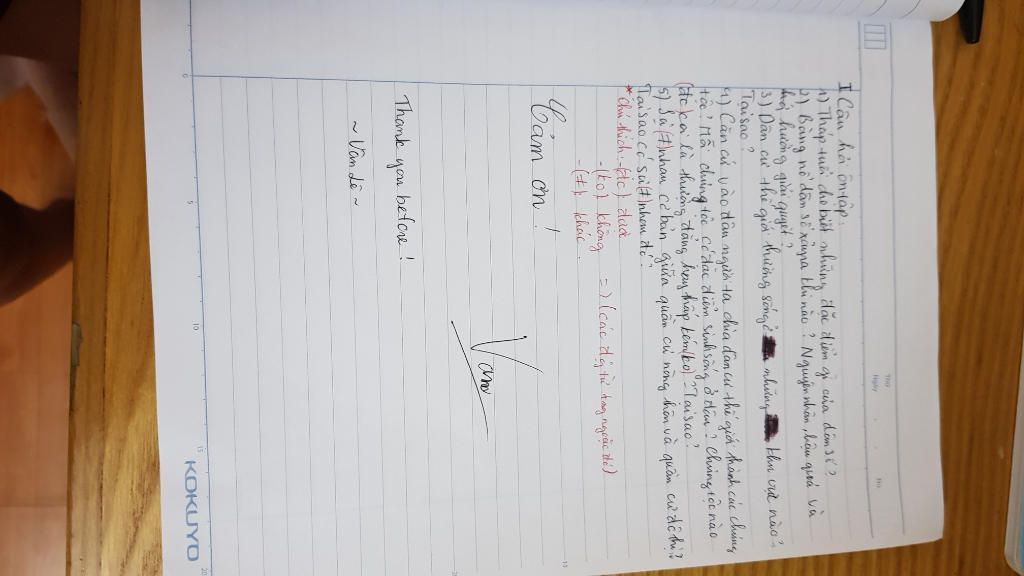 I Câu hỏi ôn tập.
1) Tháp tuổi cho biết những đặc điểm gì của dân số?
2) Bùng nổ dân số xảy ra khi nào? Nguyên nhân, hậu quả và
hướng giải quyết?
3) Dân cư thế giới thường sống ở những khu vực nào?
Tại sao?
4) Căn cứ vào đâu người ta chia dân cư thế giới thành các chủng
tộc? Mỗi chủng tộc có đặc điểm sinh sống ở đâu? Chủng tộc nào
(đc) coi là thượng đẳng hay thấp kém (ko)? Tại sao?
5) Sự (≠) nhau cơ bản giữa quần cư nông thôn và quần cư đô thị?
Tại sao có sự (≠) nhau đó?
* Chú thích: (đc) được
- (ko) không => (các từ trong ngoặc đó)
- (≠) khác.
Cảm ơn!
Thank you before!
~ Vân ~
KOKUYO